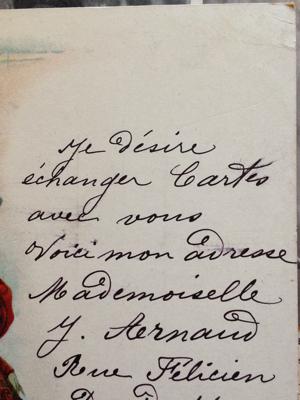 Je désire
échanger Cartes
avec vous
Voici mon adresse
Mademoiselle
J. Aernaud
Rue Félicien